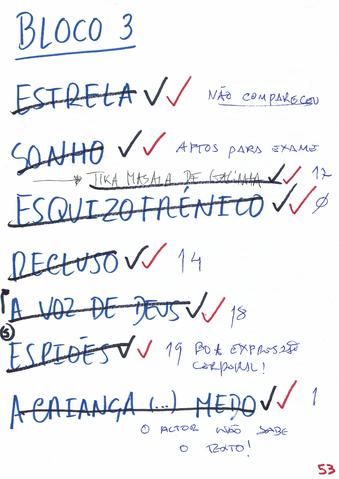 BLOCO 3
ESTRELA ✓✓ NÃO COMPARECEU
SONHO ✓✓ APTOS PARA EXAME
TIKA MASALA DE GALINHA ✓✓ 17
ESQUIZOFRÉNICO ✓✓ Ø
RECLUSO ✓✓ 14
A VOZ DE DEUS ✓✓ 18
5
ESPIÕES ✓✓ 19 BOA EXPRESSÃO
CORPORAL!
A CRIANÇA (...) MEDO ✓✓ 1
O ACTOR NÃO SABE
O TEXTO!
53